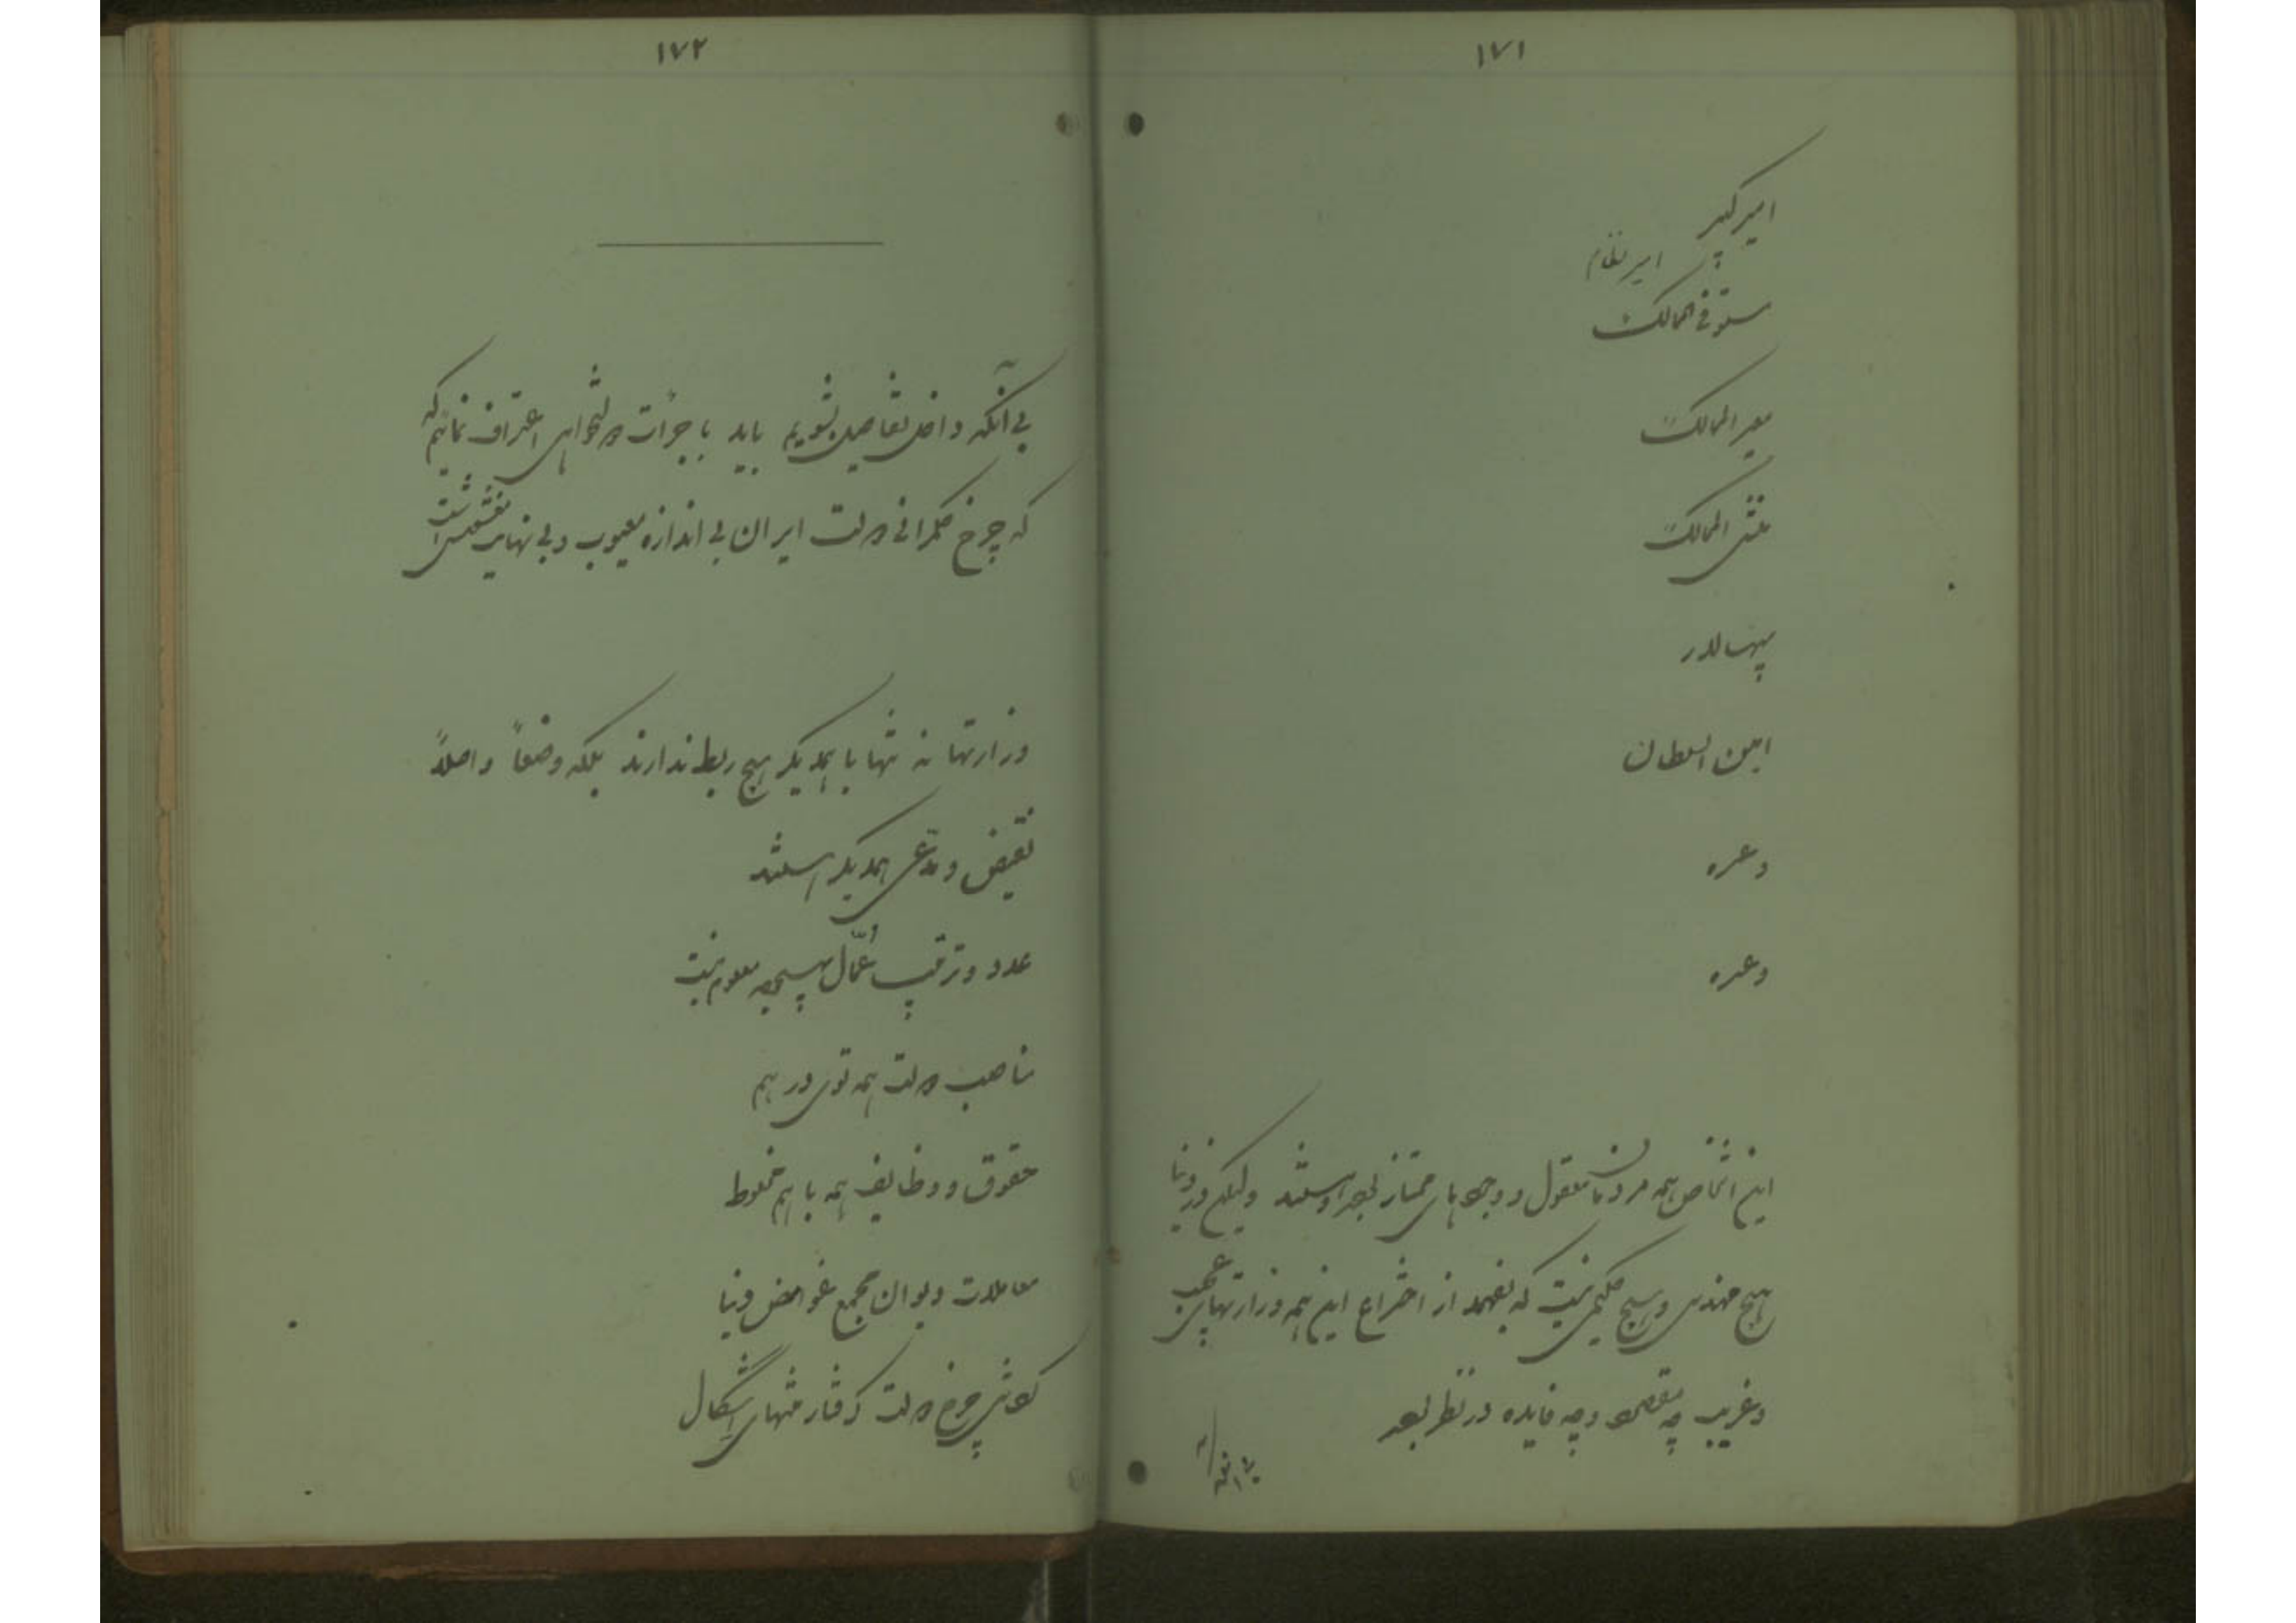 ۱۷۱
امیر کبیر
امیر نظام
مستوفی الممالک
معیر الممالک
منشی الممالک
سپهسالار
امین السلطان
وغیره
وغیره
این اشخاص همه مردمان معقول و وجودهای ممتاز بوده و هستند ولیکن در دنیا
هیچ مهندس و هیچ حکیمی نیست که بفهمد از اختراع این همه وزارتهای عجیب
وغریب چه مقصود و چه فایده در نظر بود
۱۷۲
بی آنکه داخل تفاصیل بشویم باید با جرأت دولتخواهی اعتراف نمائیم که
که چرخ حکمرانی دولت ایران بی اندازه معیوب و بی نهایت مغشوش است
وزارتها نه تنها با همدیگر هیچ ربط ندارند بلکه وضعاً و اصلاً
نقیض و مدعی همدیگر هستند
عدد و ترتیب عمّال بهیچوجه معلوم نیست
مناصب دولت همه توی در هم
حقوق و وظایف همه با هم مخلوط
معاملات دیوان مجمع غوامض دنیا
گردش چرخ دولت گرفتار منتهای اشکال